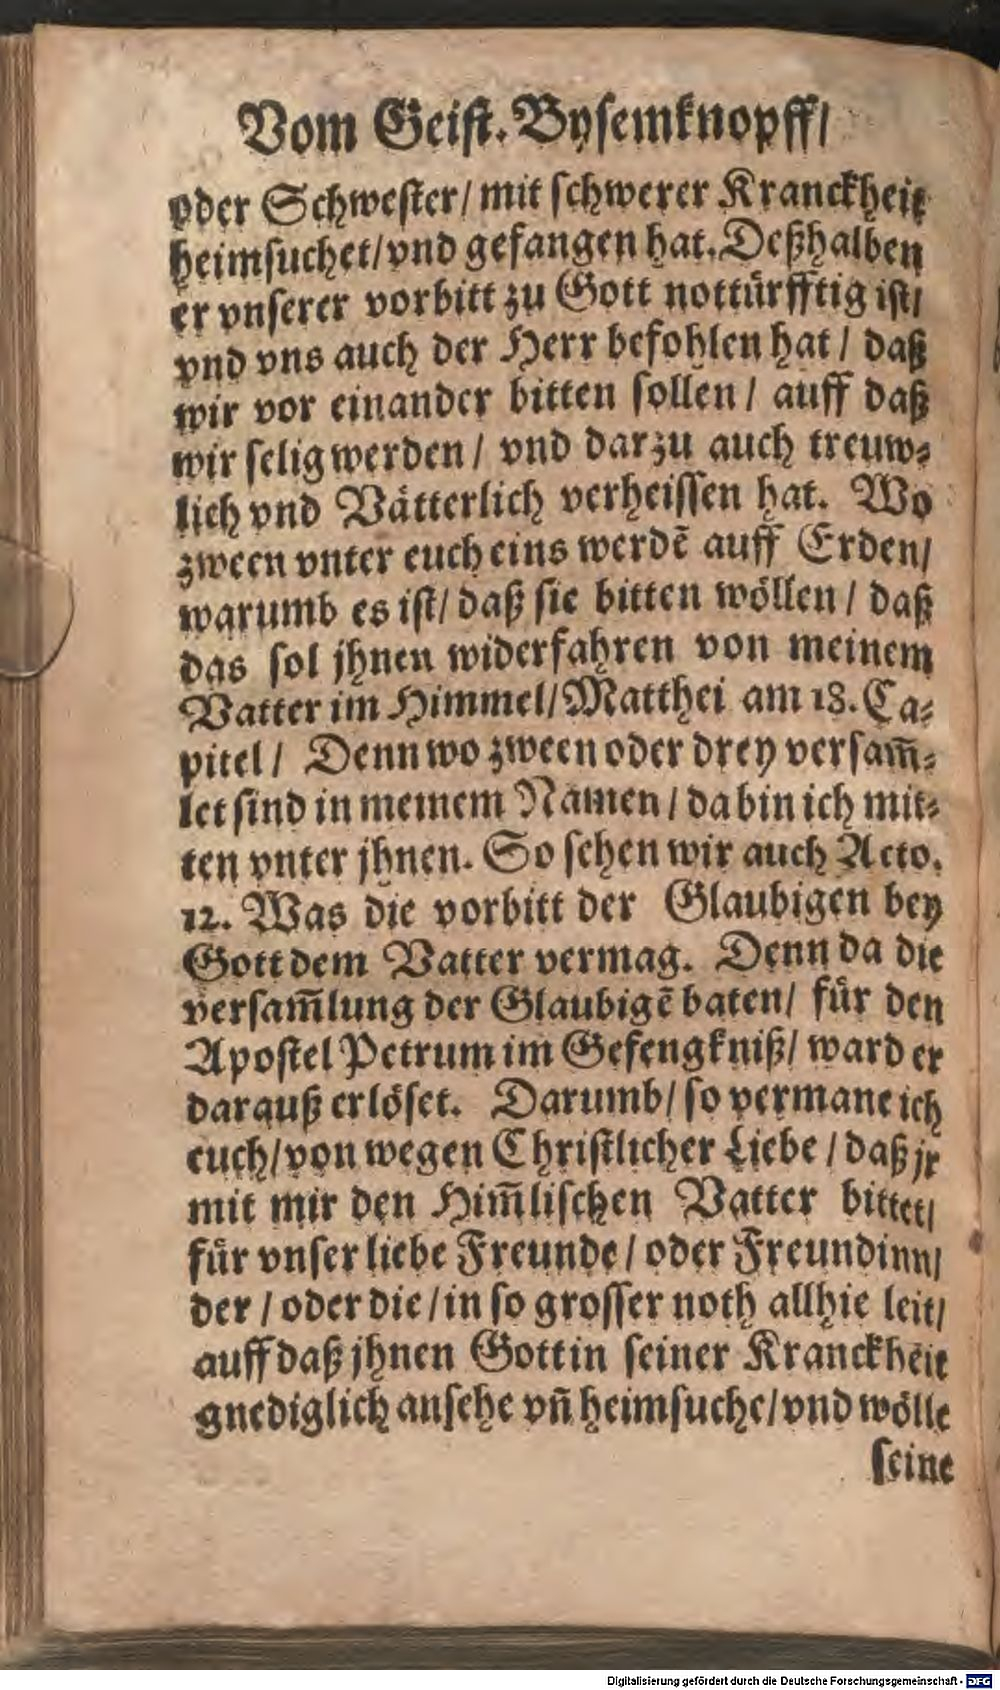 Vom Geist. Bysemknopff/
oder Schwester/ mit schwerer Kranckheit
heimsuchet/ vnd gefangen hat. Deßhalben
er vnserer vorbitt zu Gott nottürfftig ist/
vnd vns auch der Herr befohlen hat / daß
wir vor einander bitten sollen / auff daß
wir selig werden / vnd darzu auch treuw⸗
lich vnd Vätterlich verheissen hat. Wo
zween vnter euch eins werdẽ auff Erden/
warumb es ist/ daß sie bitten wöllen / daß
das sol jhnen widerfahren von meinem
Vatter im Himmel/ Matthei am 18. Ca⸗
pitel / Denn wo zween oder drey versam̃⸗
let sind in meinem Namen / da bin ich mit⸗
ten vnter jhnen. So sehen wir auch Acto.
12. Was die vorbitt der Glaubigen bey
Gott dem Vatter vermag. Denn da die
versam̃lung der Glaubigẽ baten/ für den
Apostel Petrum im Gefengkniß/ ward er
darauß erlöset. Darumb/ so vermane ich
euch/ von wegen Christlicher Liebe / daß jr
mit mir den Him̃lischen Vatter bittet/
für vnser liebe Freunde / oder Freundinn/
der / oder die / in so grosser noth allhie leit/
auff daß jhnen Gott in seiner Kranckheit
gnediglich ansehe vñ heimsuche/ vnd wölle
seine
Digitalisierung gefördert durch die Deutsche Forschungsgemeinschaft - DFG